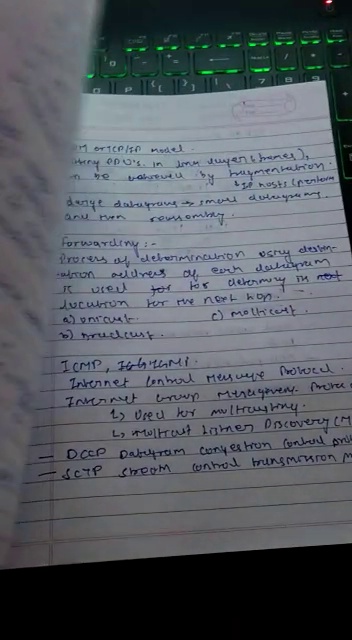 or TCP/IP model.
PDU's in layer (frames),
be achieved by fragmentation.
IP hosts (perform
large datagrams → small datagrams
and then reassembly.
Forwarding :-
Process of determination using destin-
-ation address of each datagram
is used for determing its next
location for the next hop.
a) unicast. c) multicast.
b) broadcast.
ICMP, IGMP.
Internet Control Message Protocol.
Internet Group Management Protoc
↳ Used for multicasting.
↳ Multicast Listner Discovery (M
— DCCP Datagram congestion control pro
— SCTP stream control transmission